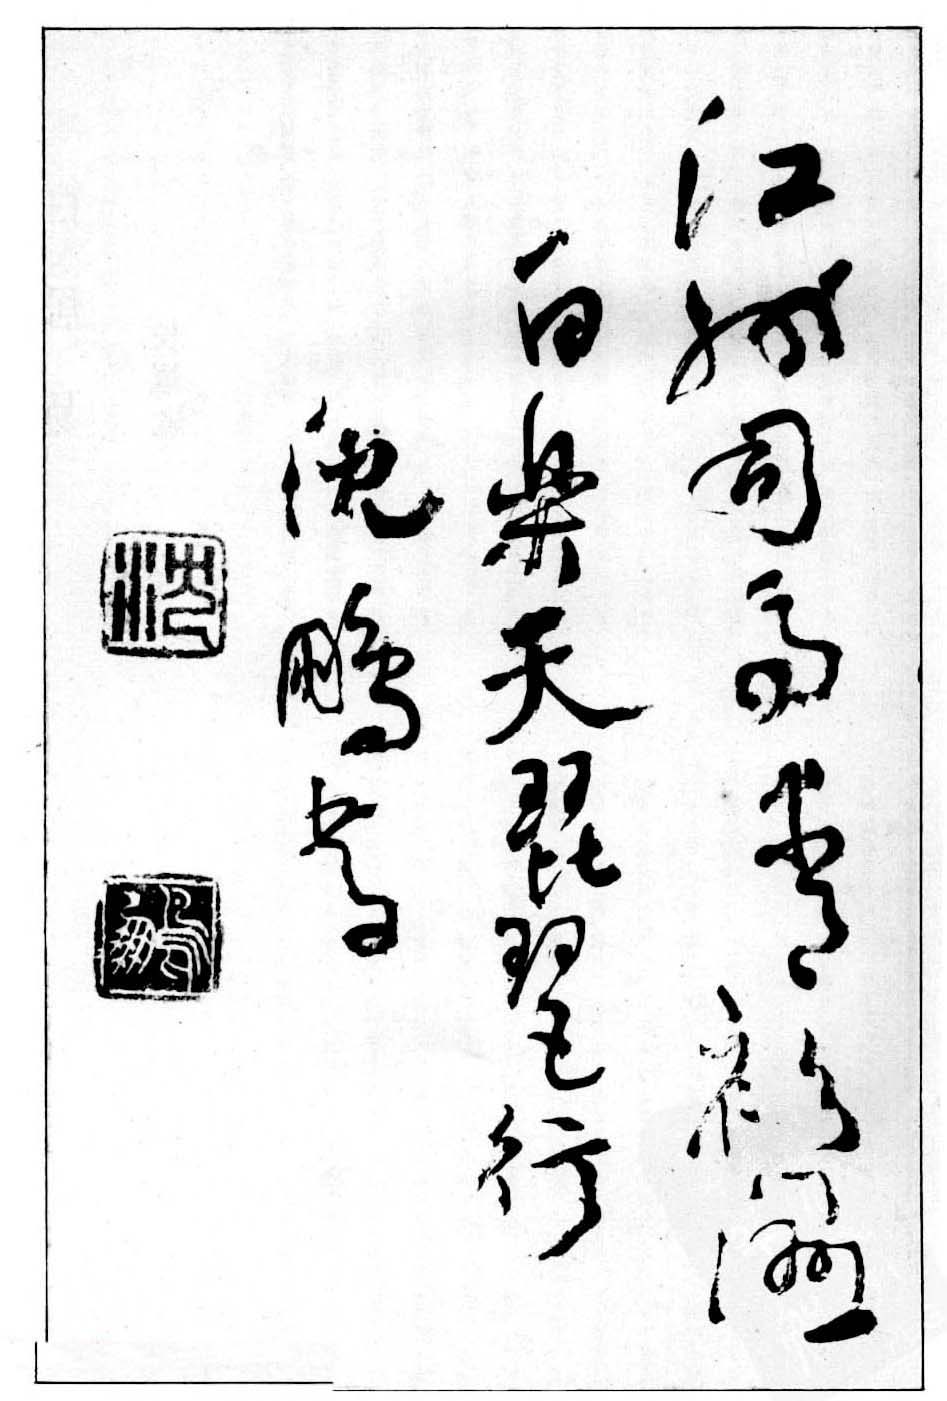 江州司馬青衫濕
白樂天琵琶行
沈鵬書
沈
鵬